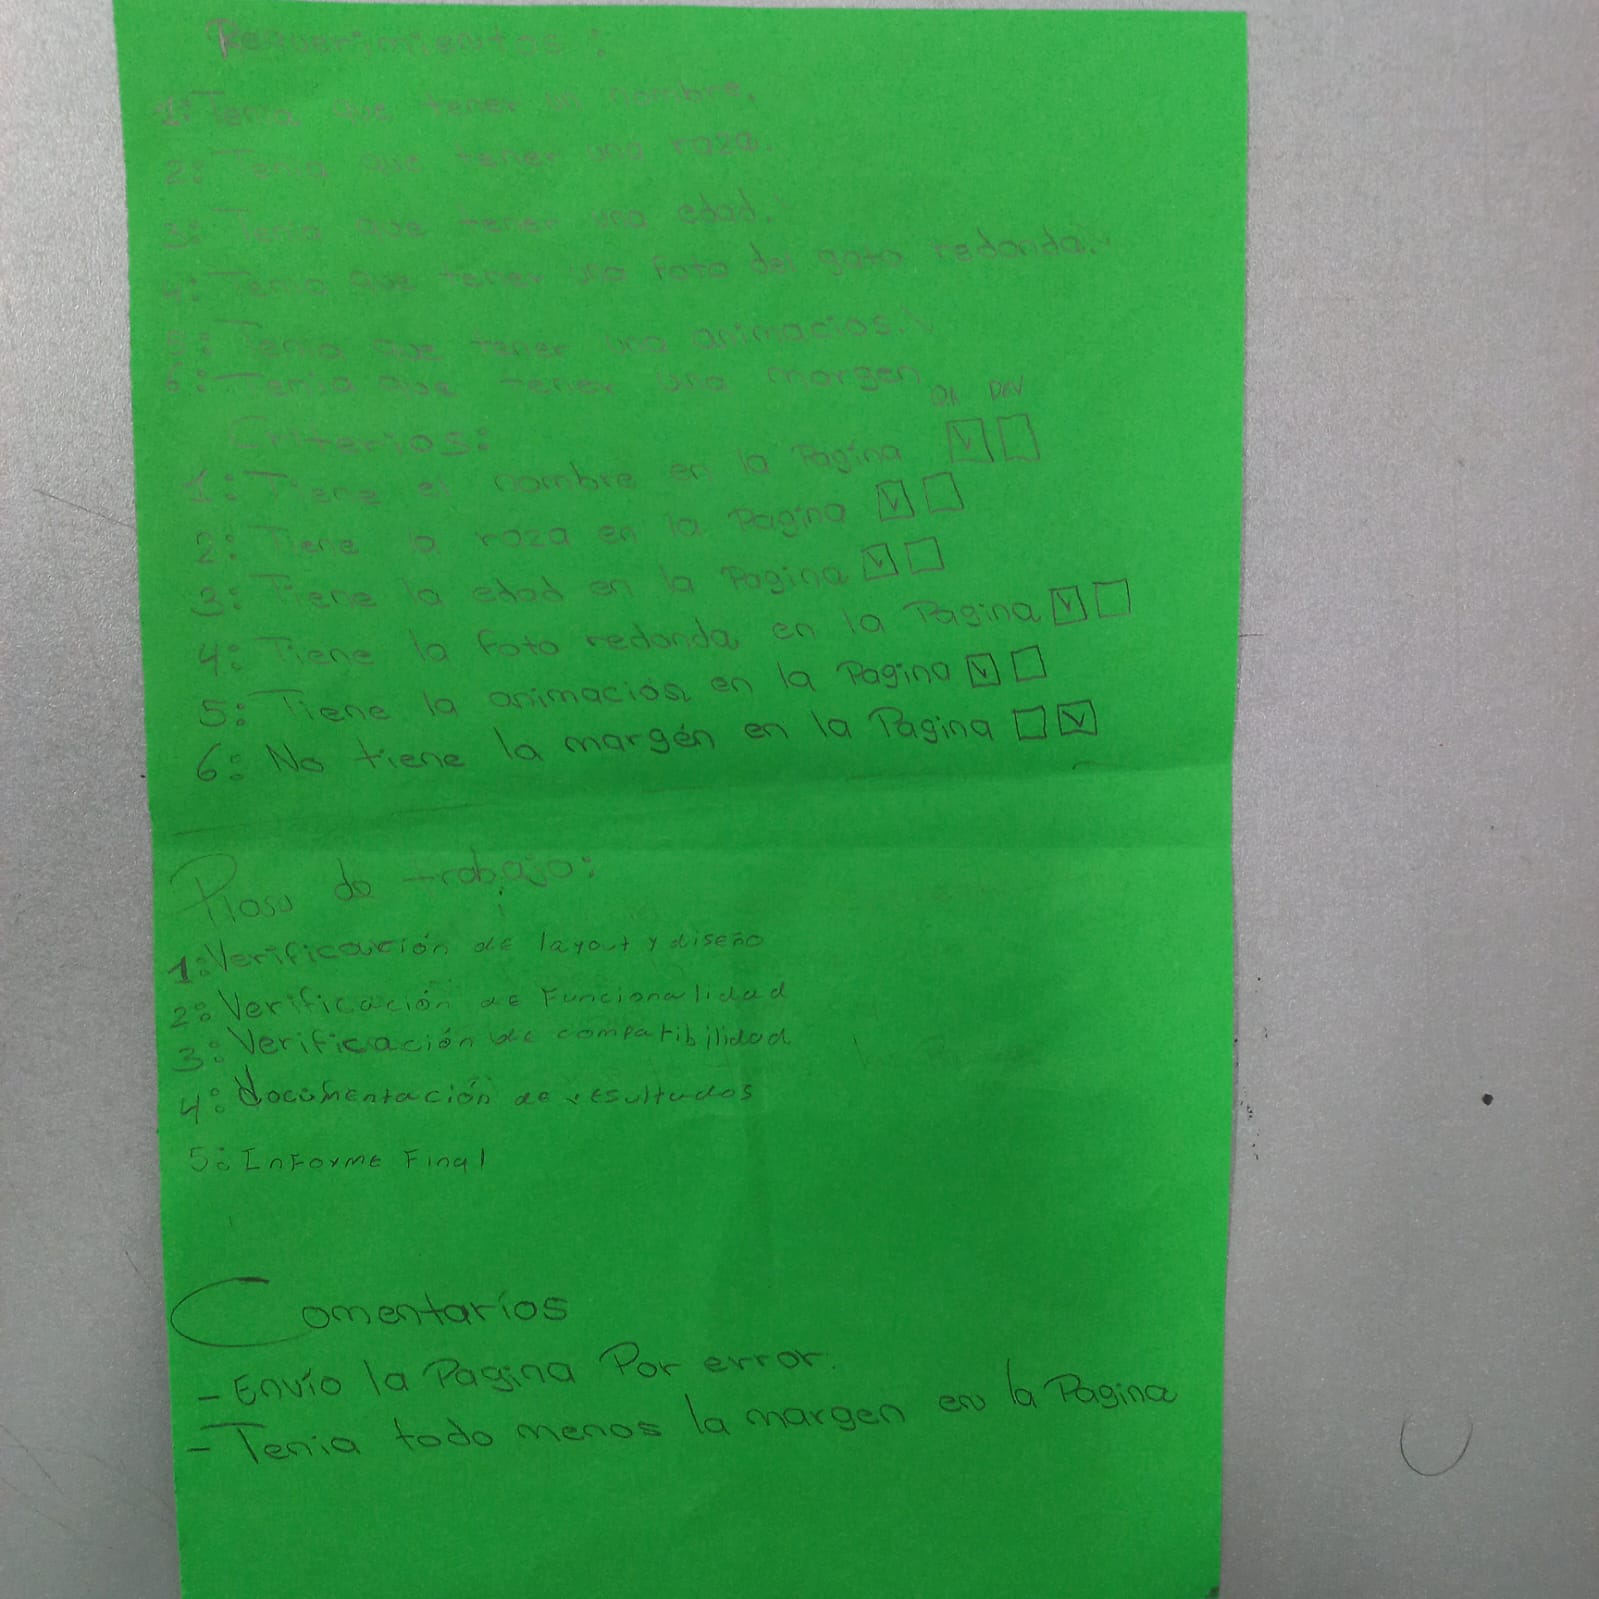 Requerimientos:
1: Tenia que tener un nombre.
2: Tenia que tener una raza.
3: Tenia que tener una edad.
4: Tenia que tener una foto del gato redonda.
5: Tenia que tener una animacios.
6: Tenia que tener una margen
DEV
Criterios:
1: Tiene el nombre en la Pagina
2: Tiene la raza en la Pagina
3: Tiene la edad en la Pagina
4: Tiene la foto redonda en la Pagina
5: Tiene la animación en la Pagina
6: No tiene la margén en la Pagina
de trabajo:
1: Verificación de layout y diseño
2: Verificación de Funcionalidad
3: Verificación de compatibilidad
4: documentación de resultados
5: Informe Final
Comentarios
- Envío la Pagina Por error.
- Tenia todo menos la margen en la Pagina